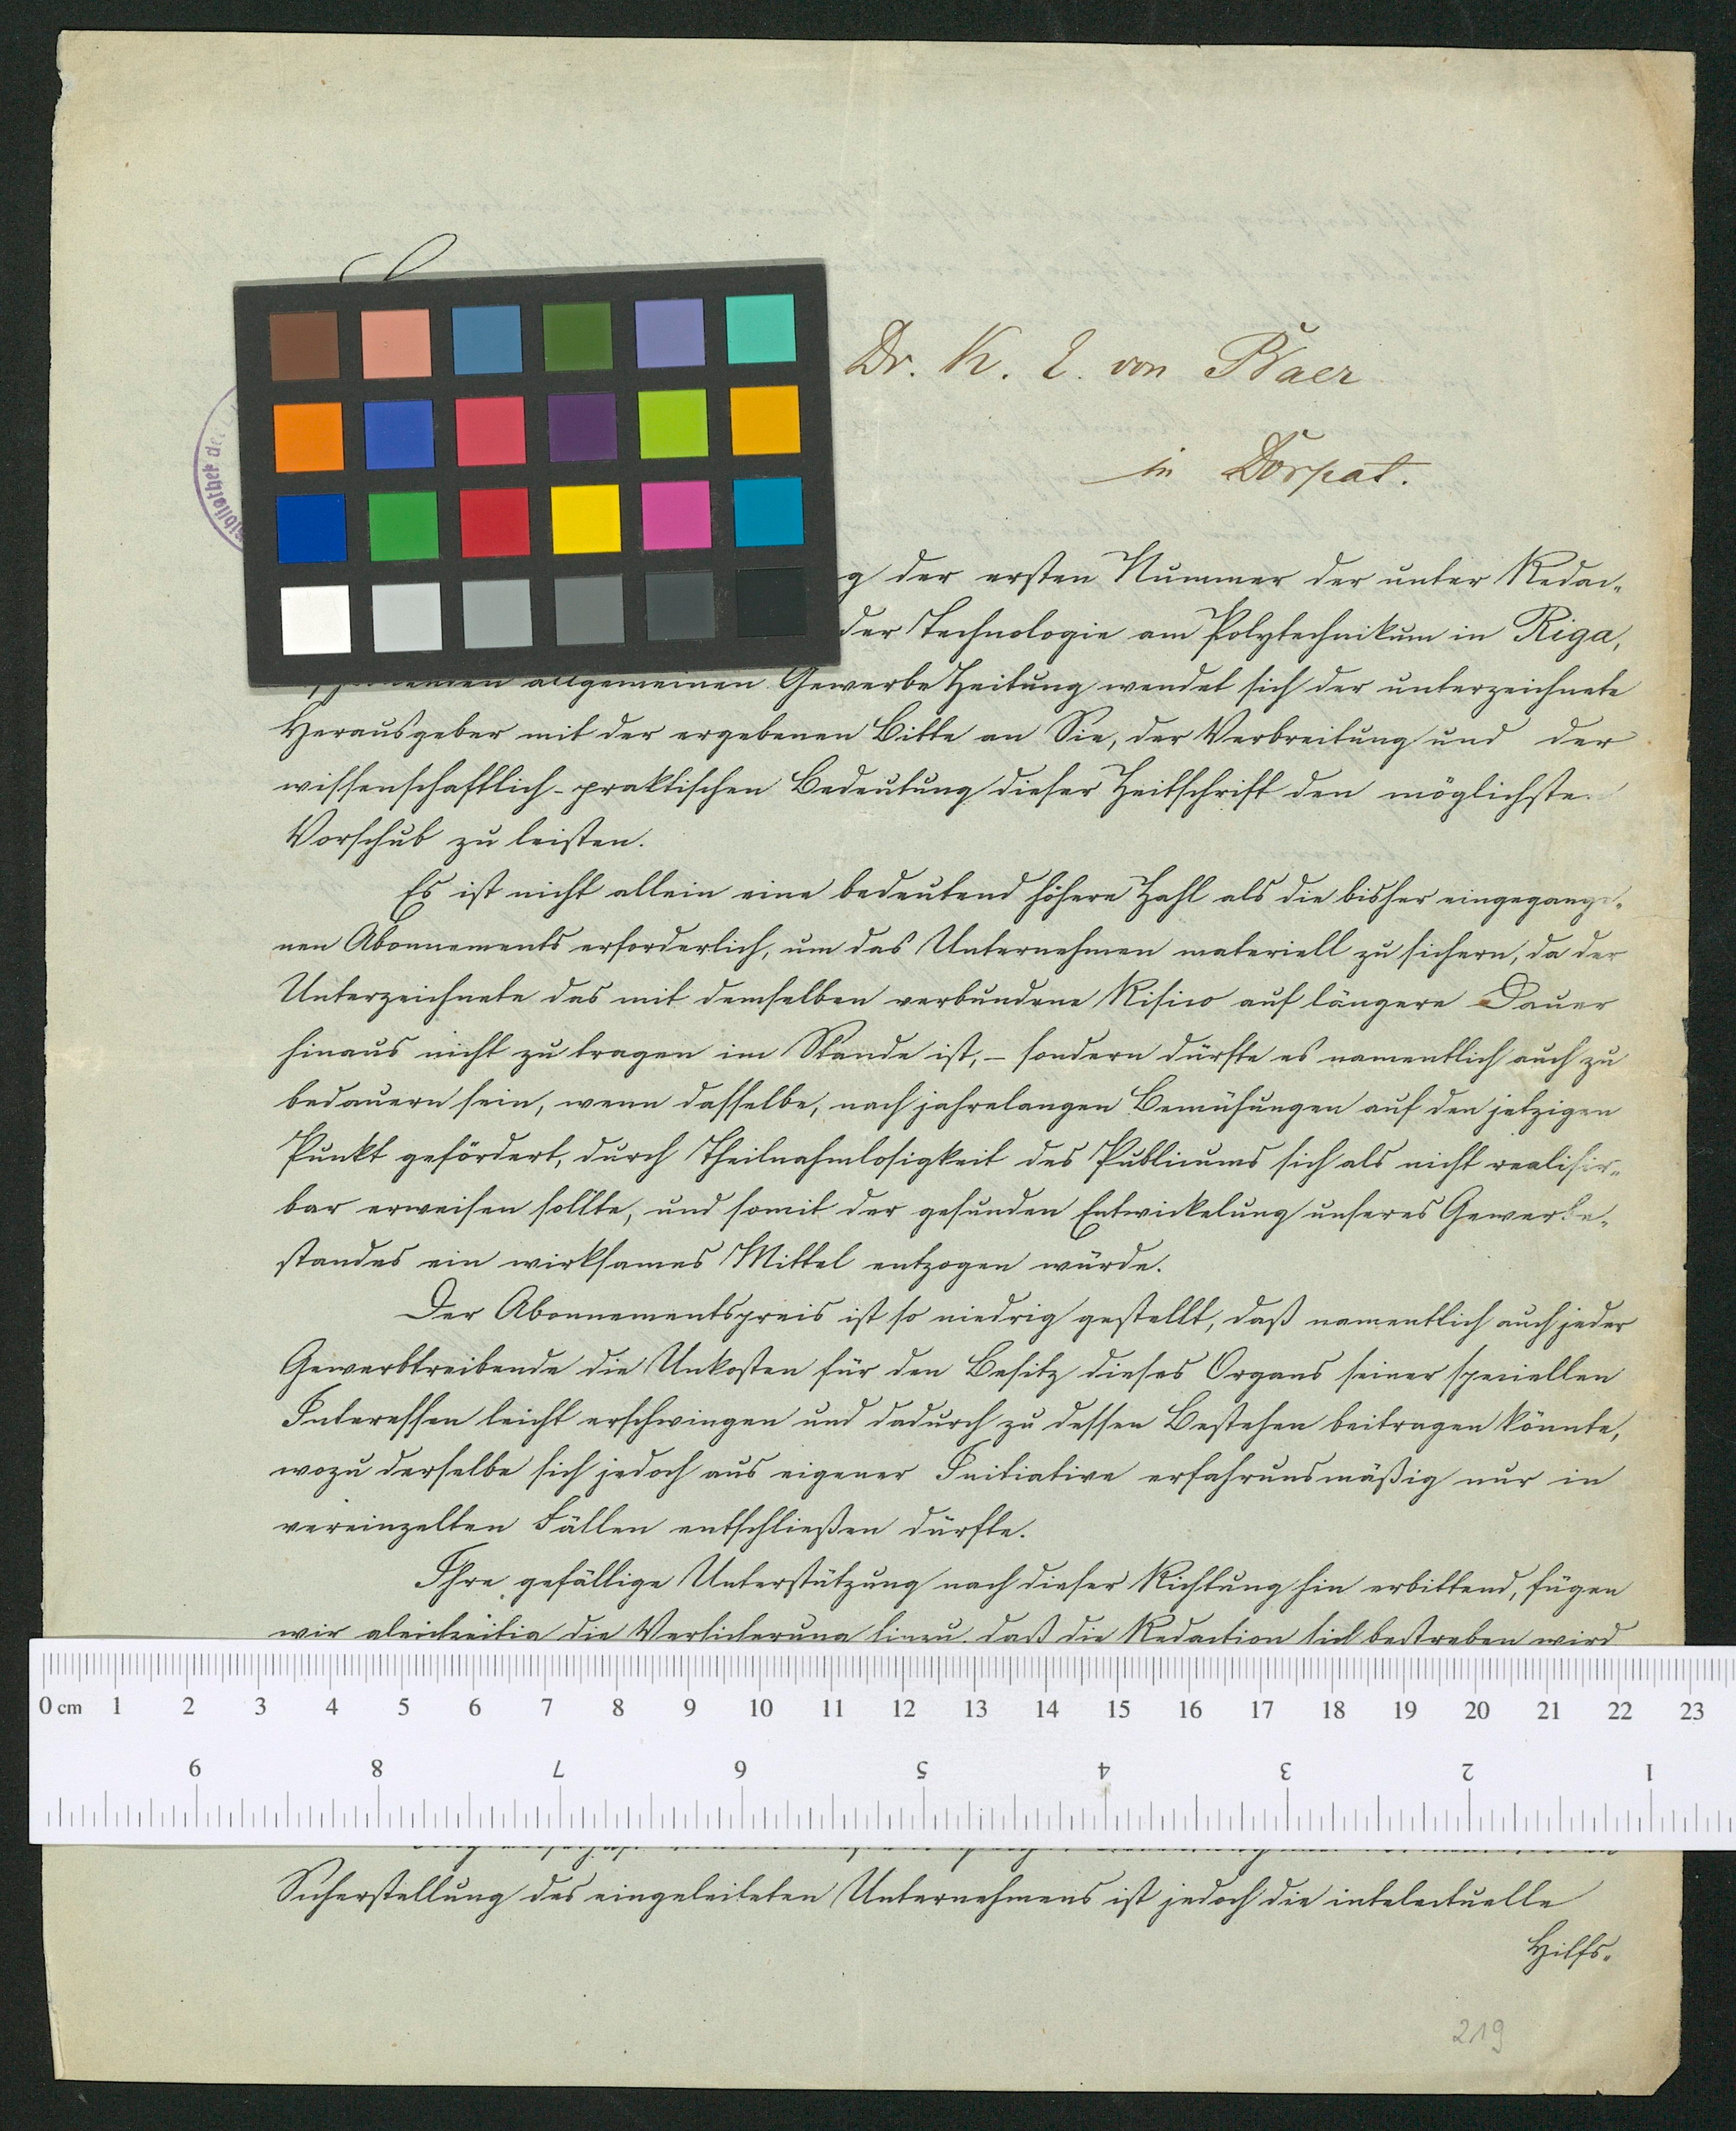 Dr. K. E. von Baer
in Dorpat.
Bibliothek der
g der ersten Nummer der unter Redac-
der Technologie am Polytechnikum in Riga,
allgemeinen Gewerbe Zeitung wendet sich der unterzeichnete
Herausgeber mit der ergebenen Bitte an Sie, der Verbreitung und der
wissenschaftlich-praktischen Bedeutung dieser Zeitschrift den möglichste
Vorschub zu leisten.
Es ist nicht allein eine bedeutend höhere Zahl als die bisher eingegange-
nen Abonnements erforderlich, um das Unternehmen materiell zu sichern, da der
Unterzeichnete das mit demselben verbundene Risico auf längere Dauer
hinaus nicht zu tragen im Stande ist, – sondern dürfte es namentlich auch zu
bedauern sein, wenn dasselbe, nach jahrelangen Bemühungen auf den jetzigen
Punkt gefördert, durch Theilnahmlosigkeit des Publicums sich als nicht realisir-
bar erweisen sollte, und somit der gesunden Entwickelung unseres Gewerbe-
standes ein wirksames Mittel entzogen würde.
Der Abonnementspreis ist so niedrig gestellt, daß namentlich auch jeder
Gewerbtreibende die Unkosten für den Besitz dieses Organs seiner speciellen
Interessen leicht erschwingen und dadurch zu dessen Bestehen beitragen könnte,
wozu derselbe sich jedoch aus eigener Initiative erfahrunsmäßig nur in
vereinzelten Fällen entschließen dürfte.
Ihre gefällige Unterstützung nach dieser Richtung hin erbittend, fügen
wir gleichzeitig die Versicherung hinzu, daß die Redaction sich bestreben wird
0 cm 1 2 3 4 5 6 7 8 9 10 11 12 13 14 15 16 17 18 19 20 21 22 23
9 8 7 6 5 4 3 2 1
Sicherstellung des eingeleiteten Unternehmens ist jedoch die intelectuelle
Hilfs-
219